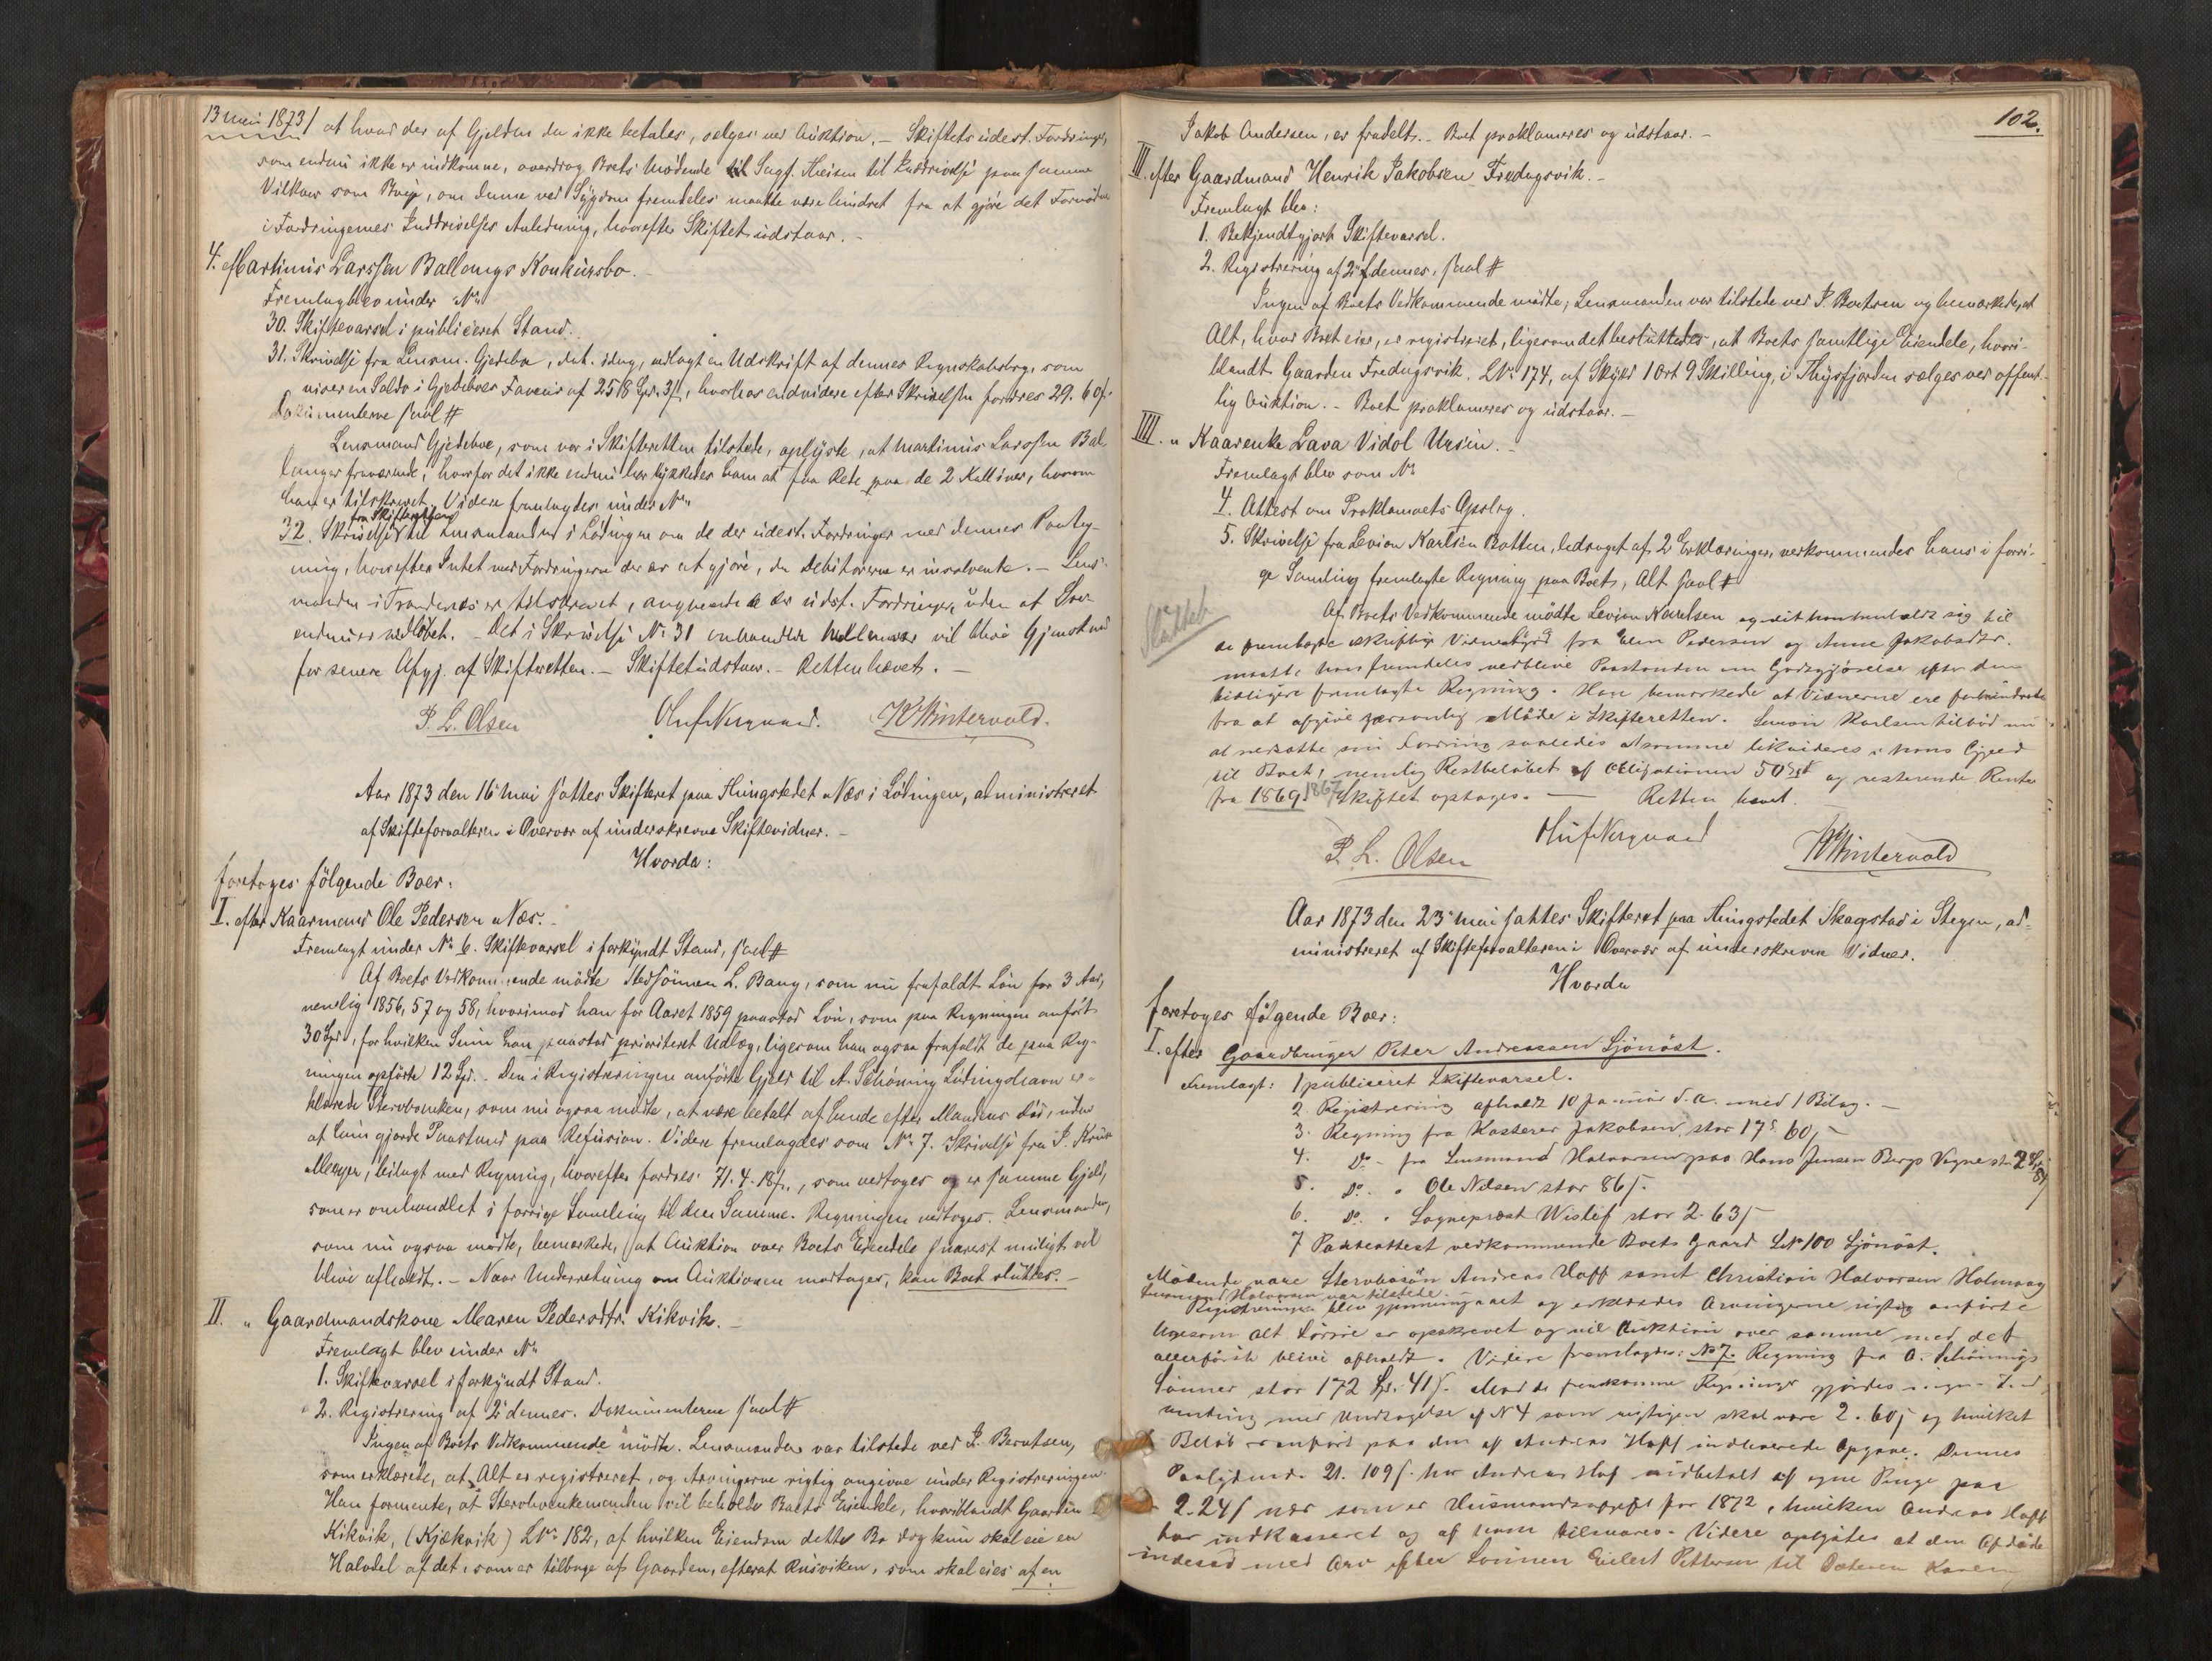 13 mai 1873/ at hvad der af Gjelden da ikke betales, sælges ved Auktion. — Skiftets udest. Fordringer,
som endnu ikke er indkomne, overdrog Boets Mødende til Sagf. Theisen til Inddrivelse paa samme
Vilkaar som Boye, om denne ved Sygdom fremdeles maatte være hindret fra at gjøre det Fornødne
i Fordringernes Inddrivelses Anledning, hvorefter Skiftet udstaar. —
4. Martinus Larssen Ballangs Konkursbo. —
Fremlagt blev under No
30. Skiftevarsel i publiceret Stand.
31. Skrivelse fra Lensm. Gjedebo, dat. idag, vedlagt en Udskrift af dennes Regnskabsbog, som
viser en Saldo i Gjedeboes Faveur af 25 18 Spd. 3/, hvorhos endvidere efter Skrivelsen fordres 29. 60/.
Dokumenterne saal #
Lensmand Gjedeboe, som var i Skifteretten tilstede, oplyste, at Martinus Larssen Bal-
langer fraværende, hvorfor det ikke endnu har lykkedes ham at faa Rede paa de 2 , hvorom
han er tilskrevet. Videre fremlagdes under No
32. Skrivelse fra Skifteretten til Lensmanden i Lødingen om de der udest. Fordringer med dennes Paateg-
ning, hvorefter Intet ved Fordringerne der er at gjøre, da Debitorerne er insolvente. — Lens-
manden i Trondenes er tilskrevet, angaaende de der udst. Fordringer, uden at Svar
endnu er indløbet. — Det i Skrivelse No 31 omhandlede vil blive Gjenstand
for senere Afgj. af Skifteretten. — Skiftet udstaar. — Retten hævet. —
P. L. Olsen Oluf Nergaard. K Wintervold.
Aar 1873 den 16 mai sattes Skifteret paa Thingstedet Næs i Lødingen, administreret
af Skifteforvalteren i Overvær af underskrevne Skiftevidner. —
Hvorda:
foretoges følgende Boer:
I. efter Kaarmand Ole Pedersen Næs. —
Fremlagt under No 6. Skiftevarsel i forkyndt Stand, saal #
Af Boets Vedkommende mødte Stedsønnen L. Bang, som nu frafaldt Løn for 3 Aar,
nemlig 1856, 57 og 58, hvorimod han for Aaret 1859 paastod Løn, som paa Regningen anført
30 Spd, for hvilken Sum han paastod prioriteret Udlæg, ligesom han ogsaa frafaldt de paa Reg-
ningen opførte 12 Spd. Den i Registreringen anførte Gjeld til A. Schøning Lødingshavn er-
klærede Stervboenken, som nu ogsaa mødte, at være betalt af hende efter Mandens Død, uden
at hun gjorde Paastand paa Refusion. Videre fremlagdes som No 7. Skrivelse fra J.
Meeyer, bilagt med Regning, hvorefter fordres 71. 4. 18/., som vedtoges og er samme Gjeld,
som er omhandlet i forrige Samling til den Samme. Regningen vedtoges. Lensmanden,
som nu ogsaa mødte, bemærkede, at Auktion over Boets Eiendele snarest muligt vil
blive afholdt. — Naar Underretning om Auktionen modtages, kan Boet sluttes. —
II. " Gaardmandskone Maren Pedersdtr. Kikvik. —
Fremlagt blev under No
1. Skiftevarsel i forkyndt Stand.
2. Registrering af 2 dennes. Dokumenterne saal #
Ingen af Boets Vedkommende mødte. Lensmanden var tilstede ved J. Berntsen,
som erklærede, at Alt er registreret, og Arvingerne rigtig angivne under Registreringen.
Han formente, at Stervboenkemanden vil beholde Boets Eiendele, hvoriblandt Gaarden
Kikvik, (Kjækvik) LNr 182, af hvilken Eiendom dette Bo dog kun skal eie en
Halvdel af det, som er tilbage af Gaarden, efterat Rusviken, som skal eies af en
102.
Jakob Andersen, er fradelt. — Boet proklameres og udstaar. —
III. efter Gaardmand Henrik Jakobsen Fredagsvik. —
Fremlagt blev:
1. Bekjendtgjort Skiftevarsel.
2. Registrering af 2 dennes, saal #
Ingen af Boets Vedkommende mødte; Lensmanden var tilstede ved J. Berntsen og bemærkede, at
Alt, hvad Boet eier, er registreret, ligesom det besluttedes, at Boets samtlige Eiendele, hvori-
blandt Gaarden Fredagsvik. LNr 174, af Skyld 1 Ort 9 Skilling, i Thysfjorden sælges ved offent-
lig Auktion. — Boet proklameres og udstaar. —
IIII. " Kaarenke Lava Vidol Ursin. —
Fremlagt blev som No
4. Attest om Proklamaets Opslag.
5. Skrivelse fra Levion Karlsen Botten, ledsaget af 2 Erklæringer, vedkommendes hans i forri-
ge Samling fremlagte Regning paa Boet, Alt saal #
Sluttet
Af Boets Vedkommende mødte Levion Karlsen og idet han henholdt sig til
de fremlagte skriftlige Vidnesbyrd fra Elen Pedersen og Anne Jakobsdtr.
maatte han fremdeles vedblive Paastanden om Godtgjørelse efter den
tidligere fremlagte Regning. Han bemærkede at Vidnerne ere forhindrede
fra at afgive personlig Møde i Skifteretten. Levion Karlsen tilbød nu
at nedsætte sin Fordring saaledes at samme likvideres i hans Gjeld
til Boet, nemlig Restbeløbet af Obligationen 50 Spd og resterende Renter
fra 1869. 1867 Skiftet optages. — Retten hævet.
P. L. Olsen Oluf Nergaard K Wintervold
Aar 1873 den 23 mai sattes Skifteret paa Thingstedet Skagstad i Stegen, ad-
ministreret af Skifteforvalteren i Overvær af underskrevne Vidner.
Hvorda
foretoges følgende Boer:
I. efter Gaardbruger Peter Andreassen Ljönöst.
Fremlagt: 1 publiceret Skiftevarsel.
2 Registrering afholdt 10 januar d. a. med 1 Bilag. —
3. Regning fra Kasserer Jakobsen, stor 17 s 60/ —
4. Do - fra Lensmand Halvorsen paa Hans Jensen Bergs Vegne st. 2 Spd
5. Do. " Ole Nilsen stor 86/.
6. Do. " Sogneprest Wisløf stor 2. 63/ —
7 Panteattest vedkommende Boets Gaard LNr 100 Ljönöst.
Mødende vare Stervbosøn Andreas Hoff samt Christian Halvorsen Holmaag
Lensmand Halvorsen var tilstede.
Registreringen blev gjennemgaaet og erklæredes Arvingerne rigtig anførte
ligesom Alt Løsøre er opskrevet og vil Auktion over samme med det
allerførste blive afholdt. Videre fremlagdes: No 7. Regning fra A. Schønings
Sønner stor 172 Spd. 41/. Mod de fremkomne Regninger gjordes ingen Ind-
vending med Undtagelse af N 4 som rigtigen skal være 2. 60/ og hvilket
Beløb er anført paa den af Andreas Hoff indleverede Opgave. Dennes
Paalydende 21. 109/. har Andreas Hof udbetalt af egne Penge paa
2. 24/ nær som er Husmandsafgift for 1872, hvilken Andreas Hoff
har indkasseret og af ham tilsvares. Videre oplystes at den Afdøde
indesad med Arv efter Sønnen Eilert Pettersen til Datteren Karen